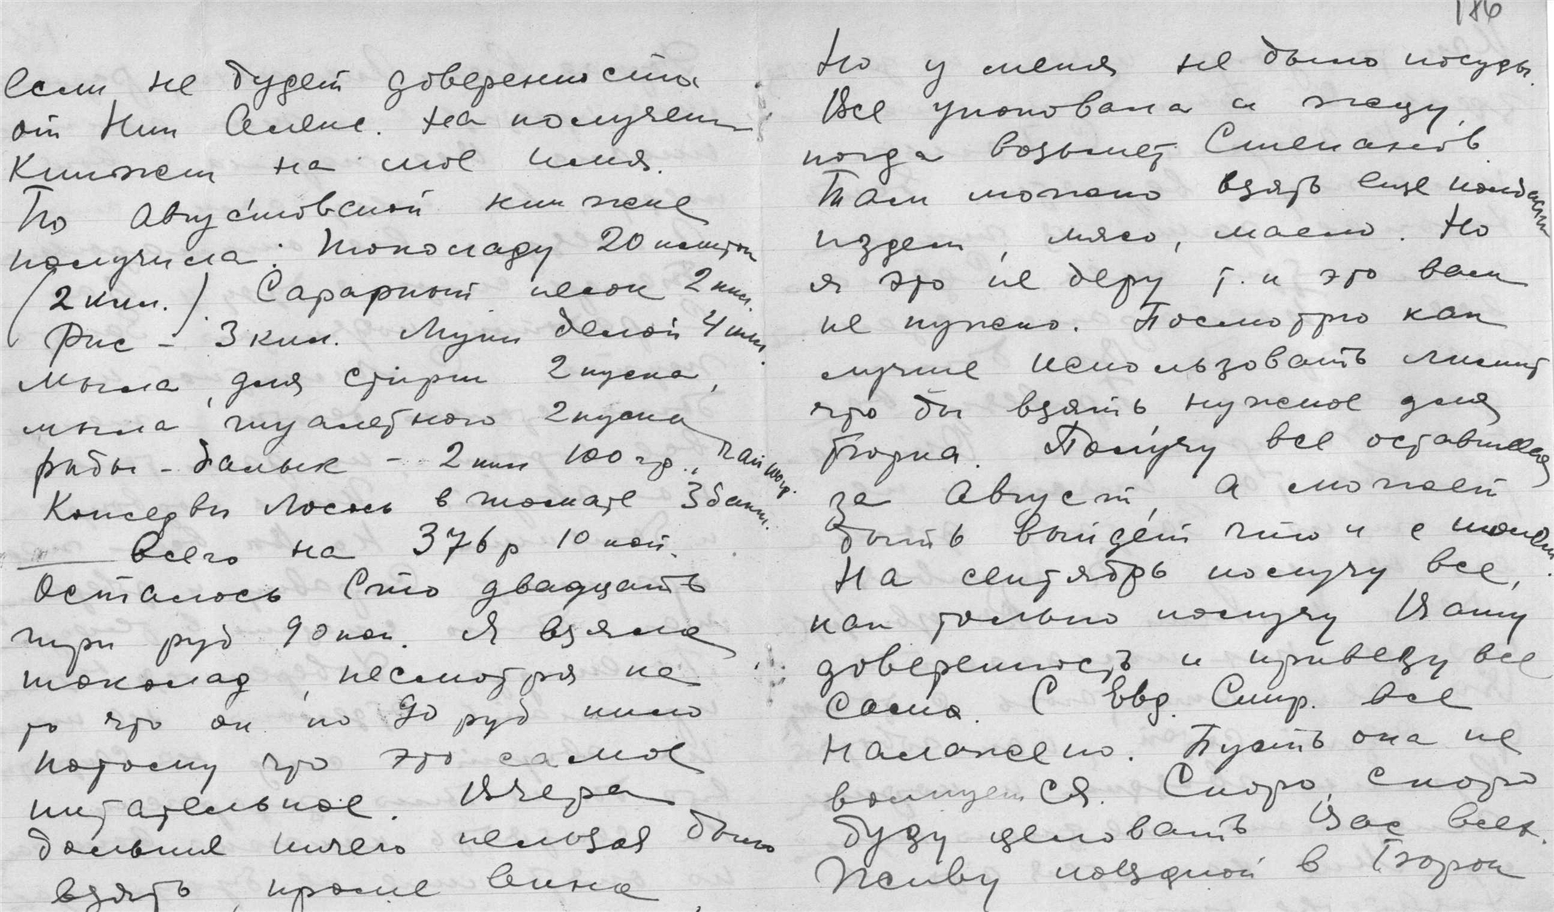 если не будет доверенности
от Ник Семенс. на получен
Книжки на мое имя.
По Августовской книжке
получила: Шоколаду 20 плиток
(2 кил.). Сахарный песок 2 кил.
Рис – 3 кил. Муки белой 4 кил.
мыла для стирки 2 куска,
мыла туалетного 2 куска
рыбы – балык – 2 кил 100 гр., чай 100 гр.
Консервы Лосось в томате 3 банк.
всего на 376 р 10 коп.
Осталось Сто двадцать
три руб 90 коп. Я взяла
шоколад, несмотря на
то что он по 90 руб кило
потому что это самое
питательное. Вчера
больше ничего нельзя было
взять, кроме вина,
186
Но у меня не было посуды.
Все упакована и жду,
когда возьмет Степанов.
Там можно взять еще колбасы
, мясо, масло. Но
я это не беру т.к это вам
не нужно. Посмотрю как
лучше использовать лимит
что бы взять нужное для
Борка. Получу все оставшееся
за Август, а может
быть выйдет что и с
На сентябрь получу все,
как только получу Вашу
доверенность и привезу все
сама. С Евд. Смир. все
налажено. Пусть она не
волнуется. Скоро, скоро
буду целовать Вас всех.
Живу поездкой в Борок